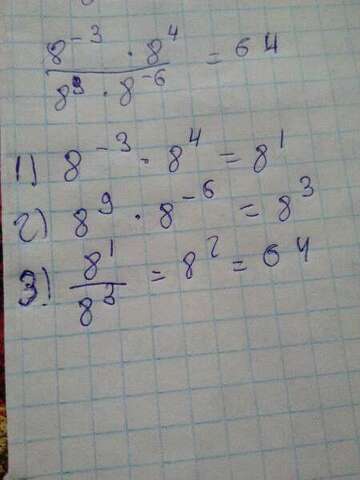 8⁻³ · 8⁴ / 8⁹ · 8⁻⁶ = 64
1) 8⁻³ · 8⁴ = 8¹
2) 8⁹ · 8⁻⁶ = 8³
3) 8¹ / 8³ = 8² = 64